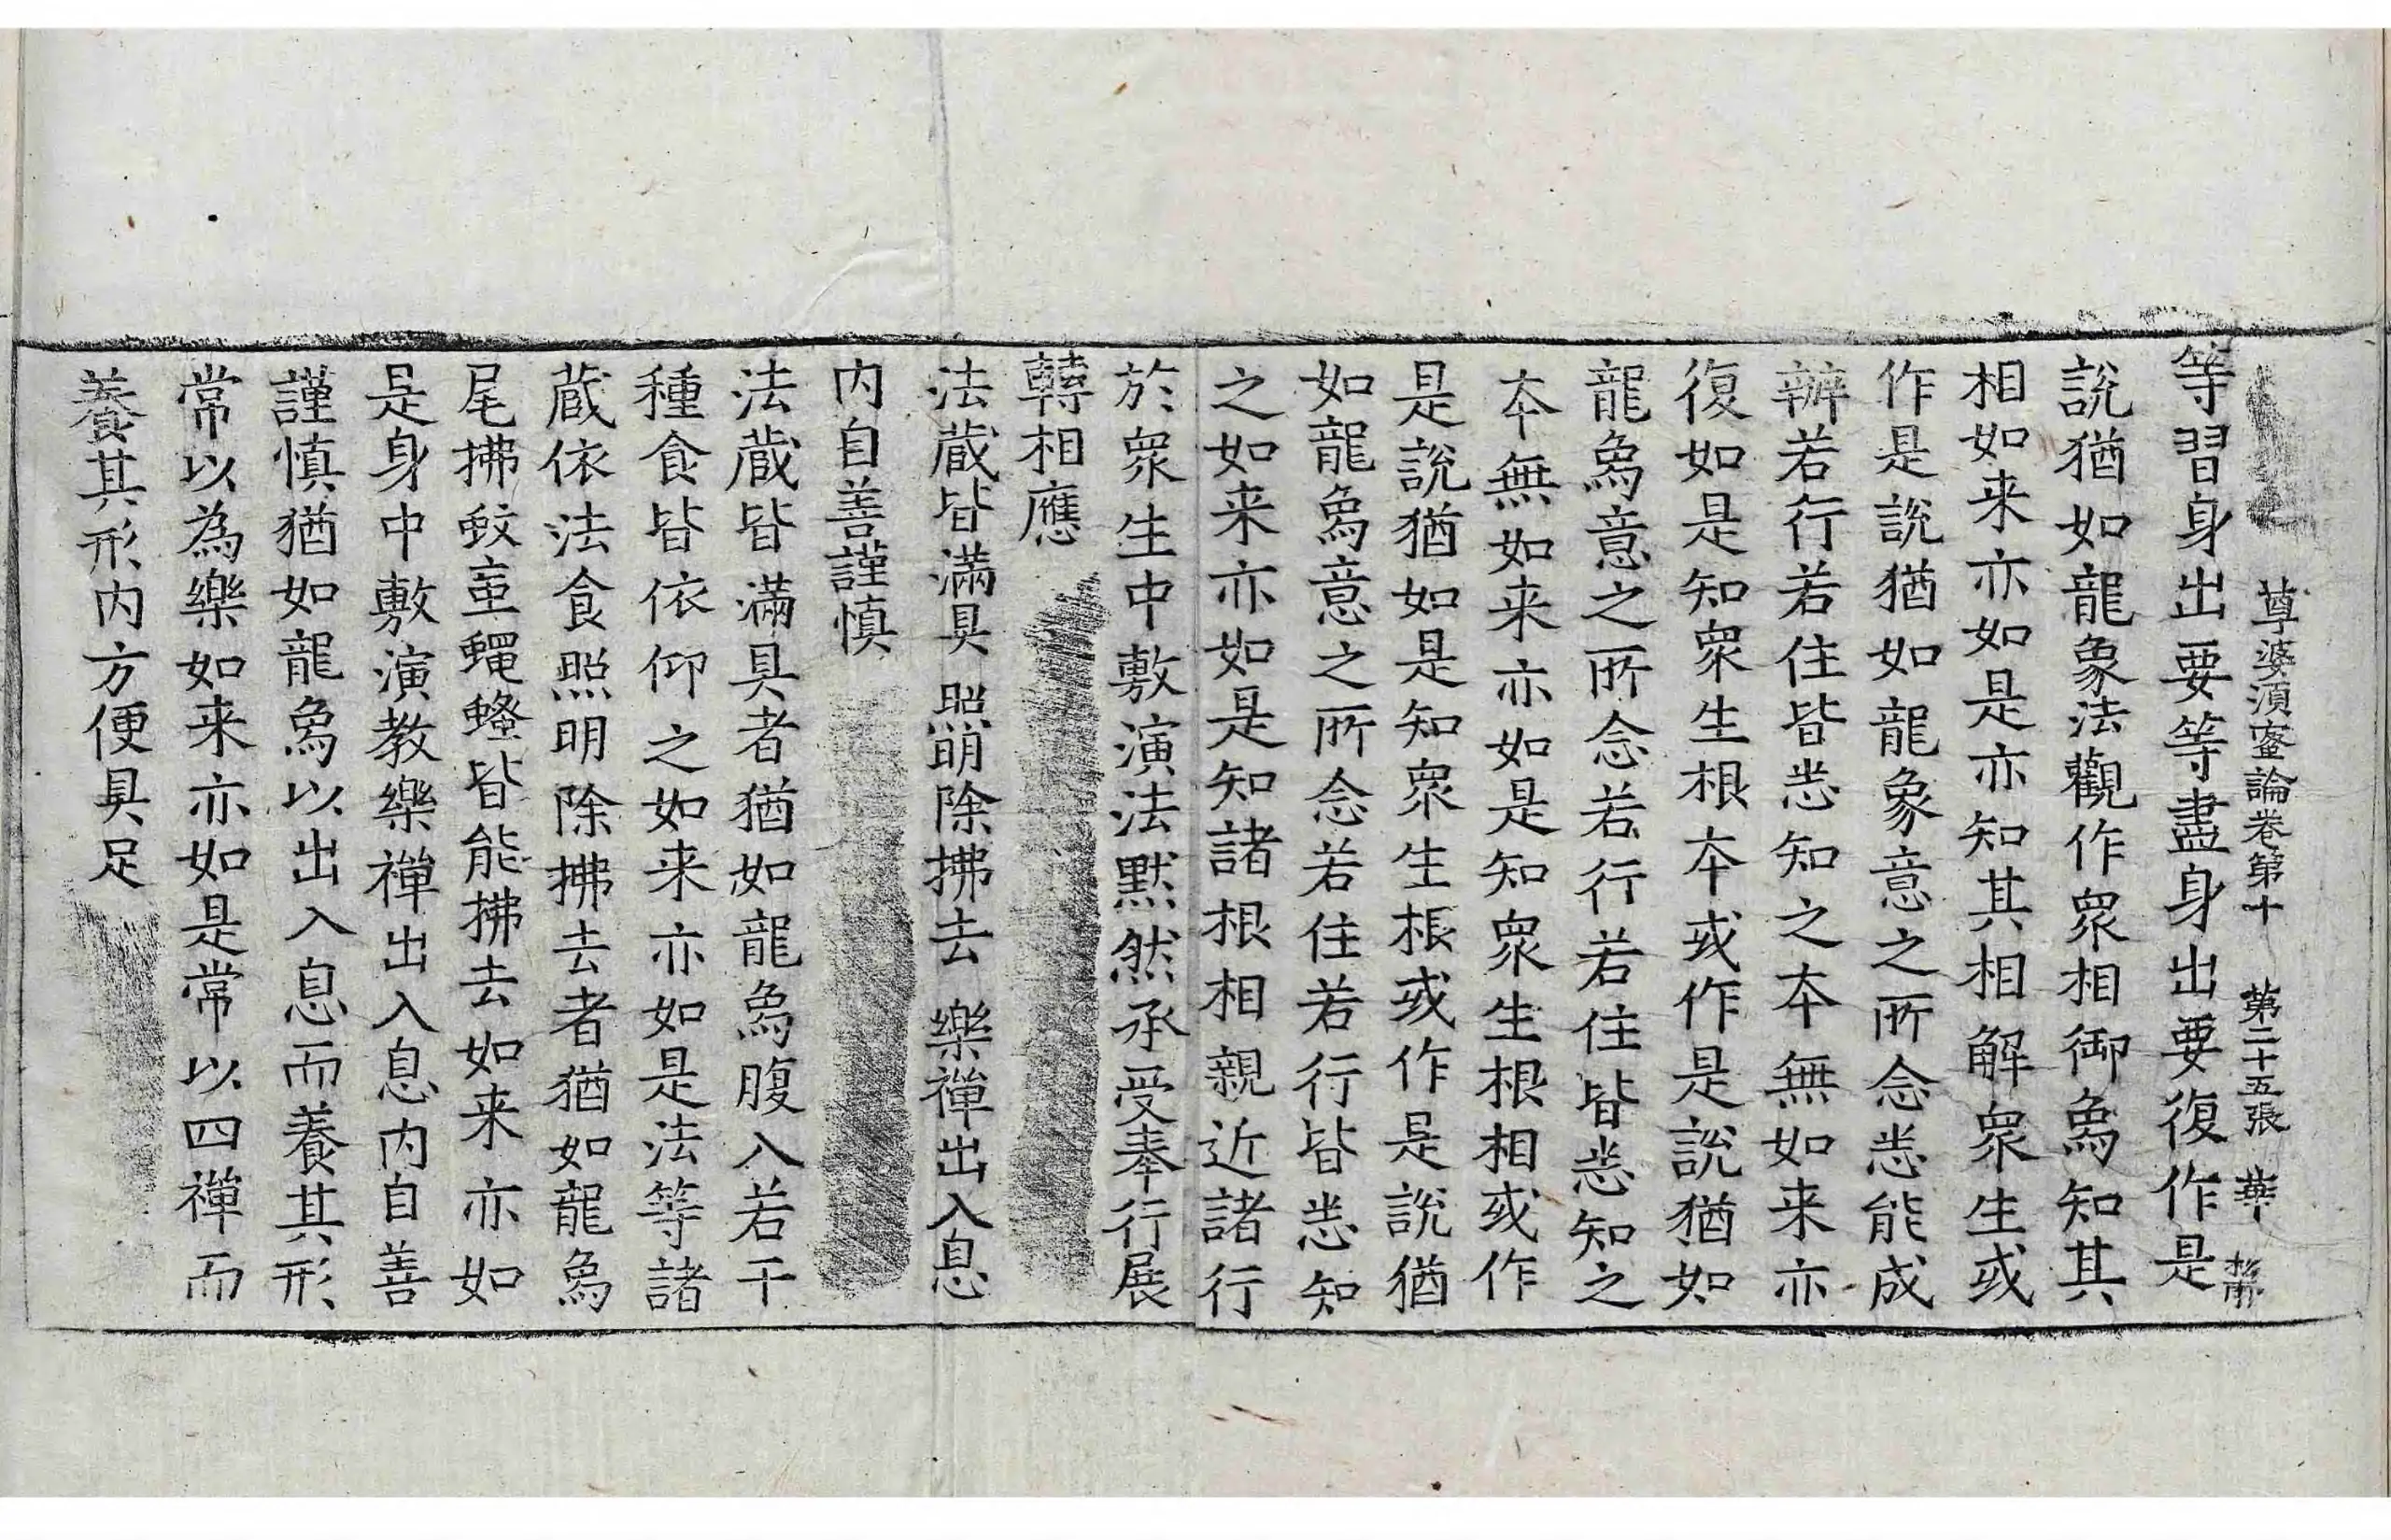 尊婆須蜜論卷第十　第二十五張　華
等習身出要等盡身出要復作是
說猶如龍象法觀作衆相御為知其
相如来亦如是亦知其相解衆生或
作是說猶如龍象意之所念悉能成
辦若行若住皆悉知之本無如来亦
復如是知衆生根本或作是說猶如
龍爲意之所念若行若住皆悉知之
本無如来亦如是知衆生根相或作
是說猶如是知衆生根或作是說猶
如龍爲意之所念若住若行皆悉知
之如来亦如是知諸根相親近諸行
於衆生中敷演法默然承受奉行展
轉相應
法蔵皆滿具　照明除拂去　樂禪出入息
内自善謹慎
法蔵皆滿具者猶如龍爲腹入若干
種食皆依仰之如来亦如是法等諸
蔵依法食照明除拂去者猶如龍爲
尾拂蚊䖝蠅蟁皆能拂去如来亦如
是身中敷演教樂禪出入息内自善
謹慎猶如龍爲以出入息而養其形
常以為樂如来亦如是常以四禪而
養其形内方便具足